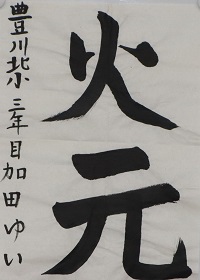 火元
豊川北小三年目加田ゆい